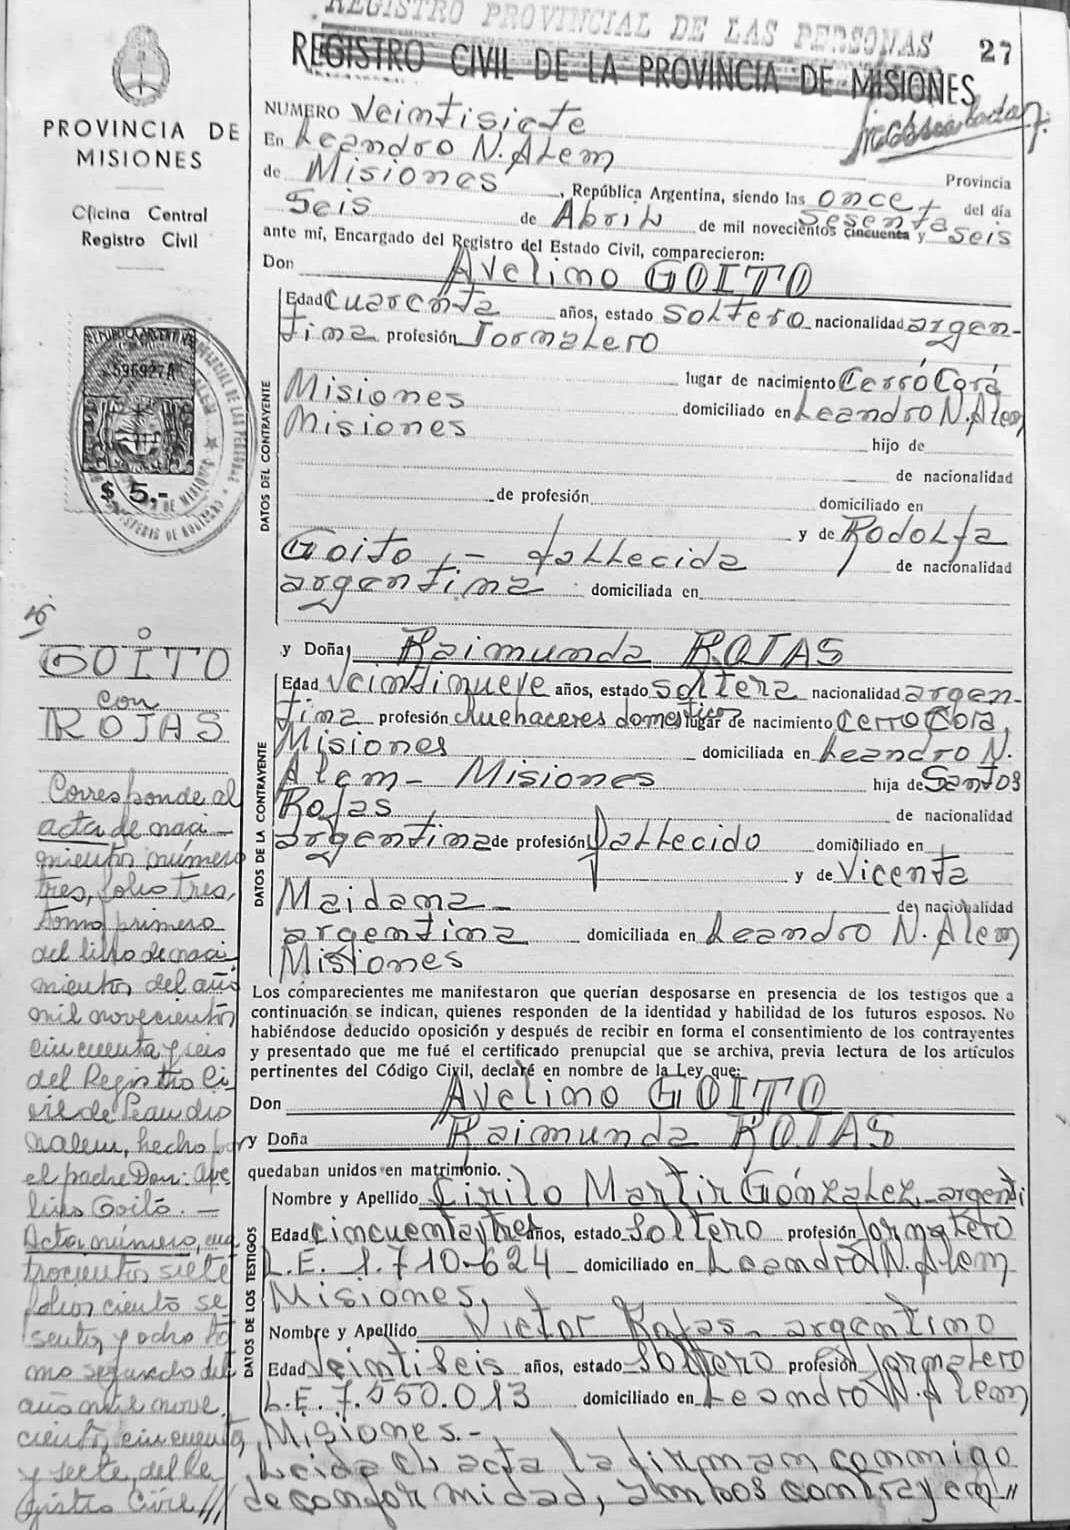 REGISTRO PROVINCIAL DE LAS PERSONAS
27
REGISTRO CIVIL DE LA PROVINCIA DE MISIONES
PROVINCIA DE
MISIONES
Oficina Central
Registro Civil
596927A
$ 5.-
NUMERO Veintisiete
En Leandro N. Alem
de Misiones Provincia
, República Argentina, siendo las once del día
Seis de Abril de mil novecientos cincuenta y sesenta seis
ante mí, Encargado del Registro del Estado Civil, comparecieron:
Don Avelino GOITO
DATOS DEL CONTRAYENTE
Edad Cuarenta años, estado soltero nacionalidad argen-
tina profesión Jornalero
lugar de nacimiento Cerró Corá
Misiones domiciliado en Leandro N. Alem
Misiones hijo de
de nacionalidad
de profesión domiciliado en
y de Rodolfa
Goito - fallecida de nacionalidad
argentina domiciliada en
y Doña Raimunda ROJAS
DATOS DE LA CONTRAYENTE
Edad Veintinueve años, estado soltera nacionalidad argen-
tina profesión Quehaceres domestico lugar de nacimiento Cerro Corá,
Misiones domiciliada en Leandro N.
Alem - Misiones hija de Santos
Rojas de nacionalidad
argentina de profesión fallecido domiciliado en
y de Vicenta
Maidana - de nacionalidad
argentina domiciliada en Leandro N. Alem
Misiones
Los comparecientes me manifestaron que querían desposarse en presencia de los testigos que a
continuación se indican, quienes responden de la identidad y habilidad de los futuros esposos. No
habiéndose deducido oposición y después de recibir en forma el consentimiento de los contrayentes
y presentado que me fué el certificado prenupcial que se archiva, previa lectura de los artículos
pertinentes del Código Civil, declaré en nombre de la Ley que:
Don Avelino GOITO
y Doña Raimunda ROJAS
quedaban unidos en matrimonio.
DATOS DE LOS TESTIGOS
Nombre y Apellido Cirilo Martir Gónzalez - argenti
Edad cincuentaytres años, estado Soltero profesión Jornalero
L.E. 1.710.624 domiciliado en Leandro N. Alem
Misiones,
Nombre y Apellido Victor Rojas - argentino
Edad Veintiseis años, estado Soltero profesión Jornalero
L.E. 7.550.013 domiciliado en Leandro N. Alem
Misiones.-
Leida el acta la firman conmigo
de conformidad, ambos contrayen//
GOITO
con
ROJAS
Corresponde al
acta de naci-
miento número
tres, folio tres,
tomo primero
del libro de naci
mientos del año
mil novecientos
cincuenta y seis
del Registro Ci-
vil de Leandro
nalem, hecho por
el padre Don: Ave
lino Goitó.-
Acta número, cua
trocientos siete
folios ciento se
senta y ocho to
mo segundo del
año mil nove
ciento, cincuenta
y siete, del Re
gistro Civil///